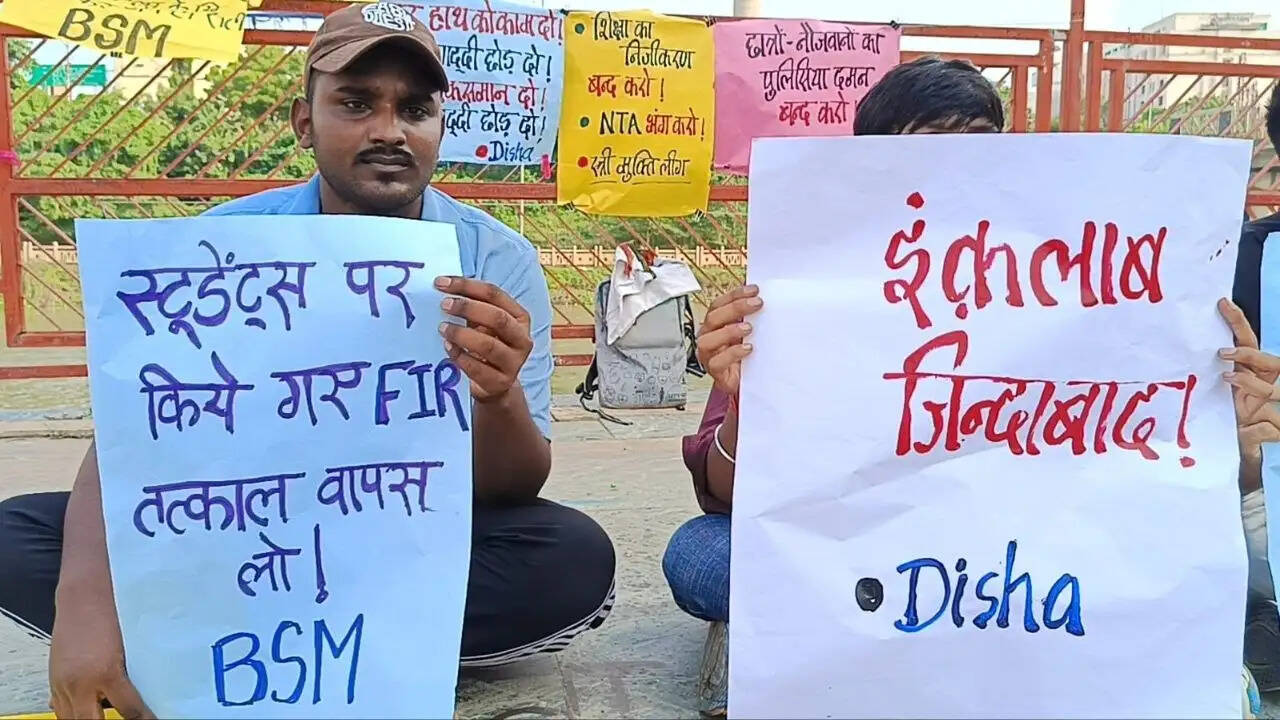 BSM
हाथ को काम दो!
गद्दी छोड़ दो!
एकसमान दो!
गद्दी छोड़ दो!
• Disha
• शिक्षा का
निजीकरण
बन्द करो!
• NTA भंग करो!
• स्त्री मुक्ति लीग
छात्रों-नौजवानों का
पुलिसिया दमन
बन्द करो!
स्टूडेंट्स पर
किये गए FIR
तत्काल वापस
लो!
BSM
इंक़लाब
ज़िन्दाबाद!
• Disha